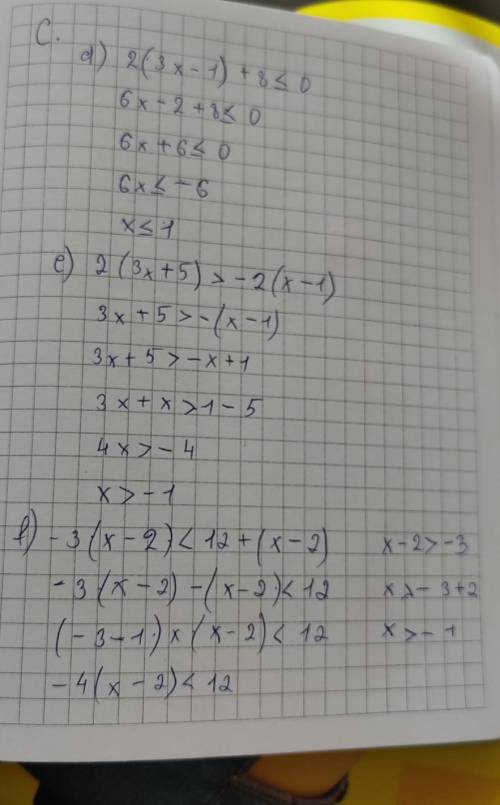 C.
d) 2(3x-1)+8≤0
6x-2+8≤0
6x+6≤0
6x≤-6
x≤1
e) 2(3x+5)>-2(x-1)
3x+5>-(x-1)
3x+5>-x+1
3x+x>1-5
4x>-4
x>-1
f) -3(x-2)<12+(x-2)
-3(x-2)-(x-2)<12
(-3-1)x(x-2)<12
-4(x-2)<12
x-2>-3
x>-3+2
x>-1